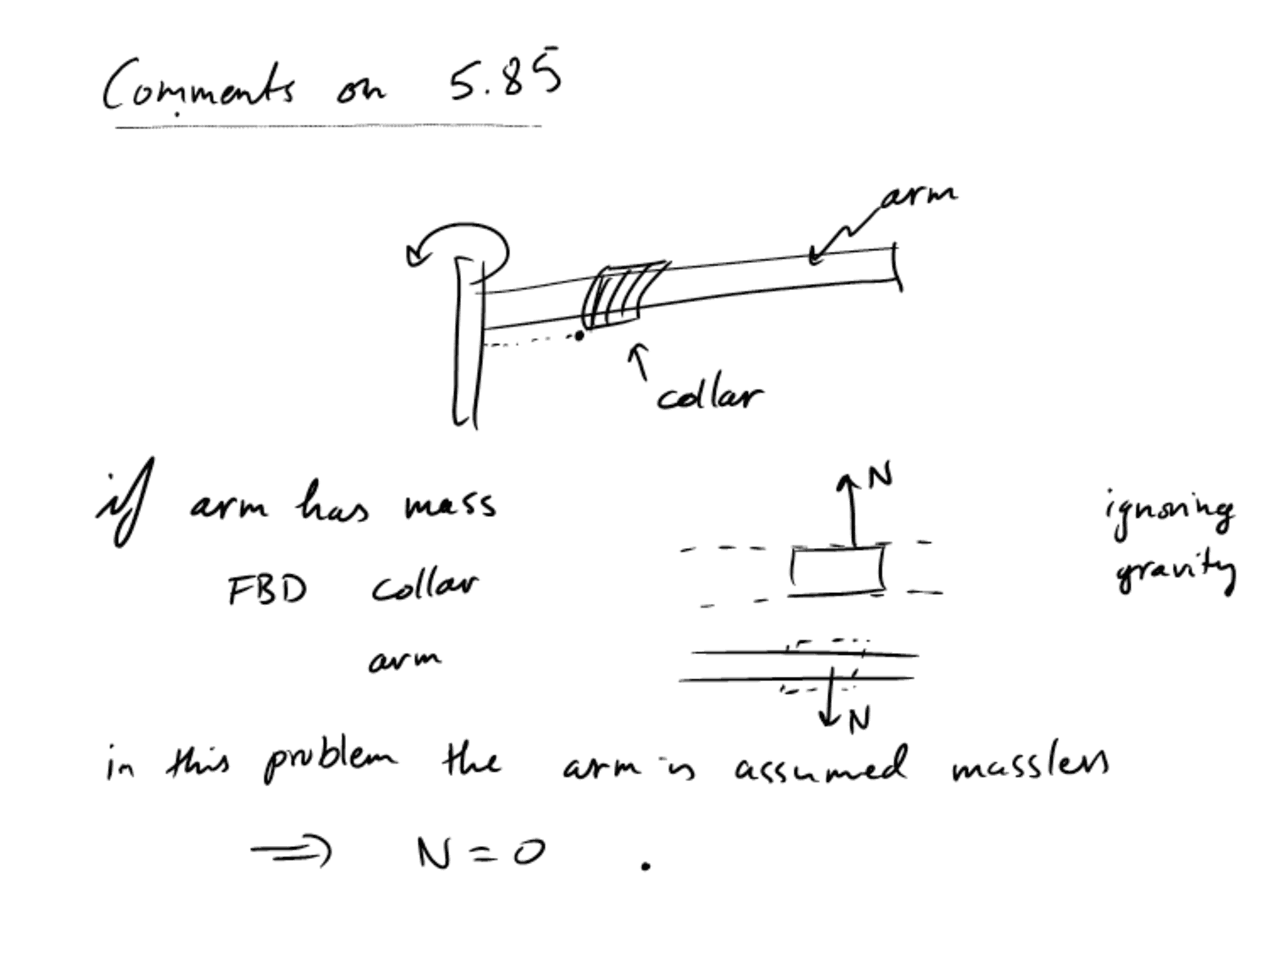 Comments on 5.85
arm
collar
if arm has mass
N
ignoring
gravity
FBD collar
arm
N
in this problem the arm is assumed massless
⇒ N = 0 .